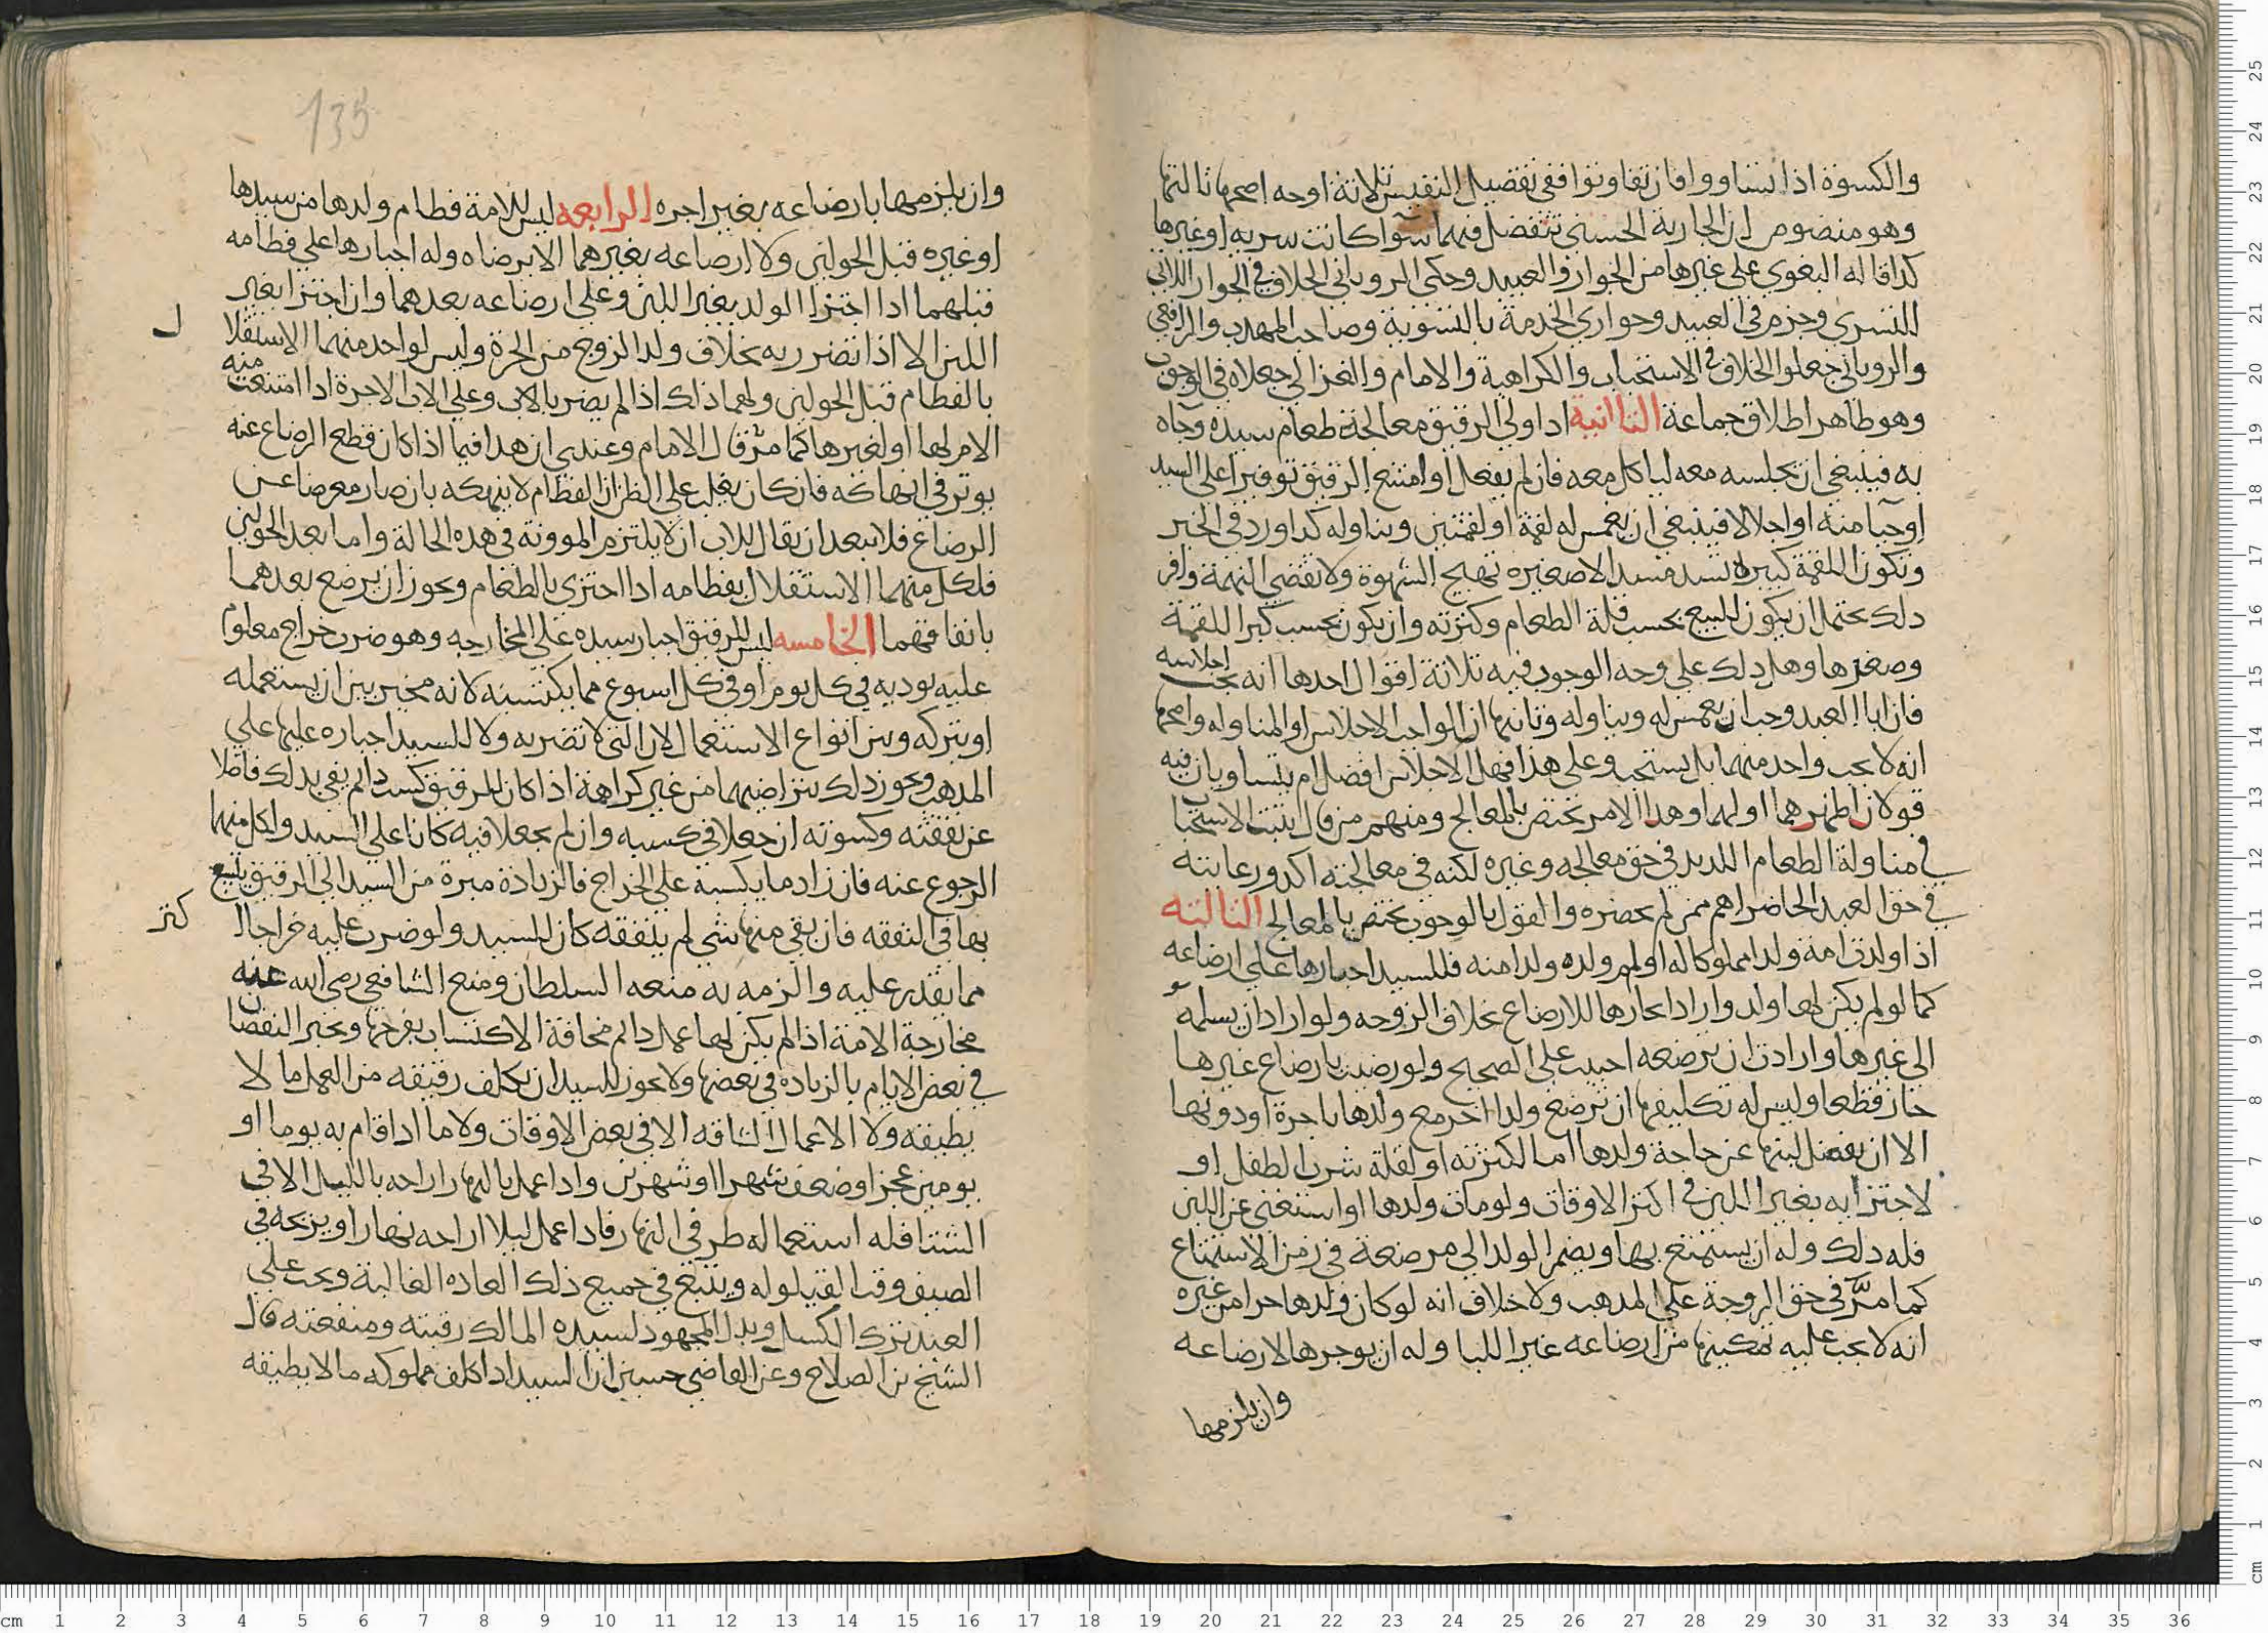 والكسوة اذا تساووا فان تفاوتوا ففي تفضيل النفيس ثلاثة اوجه اصحها ثالثها
وهو منصوص ان الجارية الحسنى تتفضل فيهما سوآ كانت سريه او غيرها
كذا قاله البغوي على غيرها من الجوار والعبيد وحكى الروياني الخلاف في الجوار اللاتي
للتسري وجزم في العبيد وجواري الخدمة بالتسوية وصاحب المهدب والرافعي
والروياني جعلوا الخلاف في الاستحباب والكراهية والامام والغزالي جعلاه في الوجوب
وهو ظاهر اطلاق جماعة الثانية اذا ولي الرقيق معالجة طعام سيده وجاه
به فينبغي ان يجلسه معه لياكل معه فان لم يفعل او امتنع الرقيق توفيرا على السيد
او حيا منه او اجلالا فينبغي ان يغمس له لقمة او لقمتين ويناوله كدا ورد في الخبر
وتكون اللقمة كبيرة تسد مسدا لا صغيره تهيج الشهوة ولا تقضي النهمة واقر
دلك يحتمل ان يكون للسبع بحسب قلة الطعام وكثرته وان يكون بحسب كبر اللقمة
وصغرها وهل دلك على وجه الوجوب فيه ثلاثة اقوال احدها انه يجب اجلاسه
فان ابا العبد وجب ان يغمس له ويناوله وثانيها ان الواجب الاجلاس او المناوله واصحها
انه لا يجب واحد منهما بل يستحب وعلى هذا فهل الاجلاس افضل ام يتساويان فيه
قولان اظهرهما اولهما وهدا الامر يختص بالمعالج ومنهم من قال يثبت الاستحباب
في مناولة الطعام اللديد في حق معالجه وغيره لكنه في معالجته اكد ورعايته
في حق العبد الحاضر اهم ممن لم يحضره والقول بالوجوب يختص بالمعالج الثالثه
اذا ولدت امة ولدا مملوكا له او لم ولده ولدا منه فللسيد اجبارها على ارضاعه
كما لو لم يكن لها ولد واراد ايجارها للارضاع بخلاف الزوجه ولو اراد ان يسلمه
الى غيرها وارادت ان ترضعه اجيبت على الصحيح ولو رضيت بارضاع غيرها
جاز قطعا وليس له تكليفها ان ترضع ولدا اخر مع ولدها باجرة او دونها
الا ان يفضل لبنها عن حاجة ولدها اما لكثرته او لقلة شرب الطفل او
لاجتزايه بغير اللبن في اكثر الاوقات ولو مات ولدها او استغنى عن اللبن
فله دلك وله ان يستمتع بها ويضم الولد الى مرضعة في زمن الاستمتاع
كما مرّ في حق الزوجة على المدهب ولا خلاف انه لو كان ولدها حرا من غيره
انه لا يجب عليه تمكينها من ارضاعه غير اللبا وله ان يوجرها لارضاعه
وان يلزمها
135
وان يلزمها بارضاعه بغير اجره الرابعه ليس للامة فطام ولدها من سيدها
او غيره قبل الحولين ولا ارضاعه بغيرهما الا برضاه وله اجبارها على فطامه
قبلهما ادا اجتزا الولد بغير اللبن وعلى ارضاعه بعدهما وان اجتزا بغير
اللبن الا اذا تضرر به بخلاف ولد الزوج من الحرة وليس لواحد منهما الاستقلال
بالفطام قبل الحولين ولهما ذلك اذا لم يضر بالابن وعلى الاب الاجرة ادا امتنعت منه
الامر لها او لغيرها كما مرّ قال الامام وعندي ان هدا فيما اذا كان قطع الرضاع عنه
يوثر في انهاكه فان كان يغلب على الظن ان الفطام لا ينهكه بان صار معرضا عن
الرضاع فلا يبعد ان يقال للاب ان لا يلتزم المووتة في هذه الحالة واما بعد الحولين
فلكل منهما الاستقلال بفطامه ادا اجتزى بالطعام ويجوز ان يرضع بعدهما
باتفاقهما الخامسه ليس للرقيق اجبار سيده على المخارجه وهو ضرب خراج معلوم
عليه يوديه في كل يوم او في كل اسبوع مما يكتسبه لانه مخير بين ان يستعمله
او يتركه وبين انواع الاستعمالات التي لا تضر به ولا للسيد اجباره عليها على
المدهب ويجوز دلك بتراضيهما من غير كراهة اذا كان للرقيق كسب دايم يفي بدلك فاضلا
عن نفقته وكسوته ان جعلا في كسبه وان لم يجعلا فيه كانا على السيد ولكل منهما
الرجوع عنه فان زاد ما يكسبه على الخراج فالزيادة مبرة من السيد الى الرقيق يتسع
بها في النفقه فان بقى منها شي لم ينفقه كان للسيد ولو ضرب عليه خراجا اكثر
مما يقدر عليه والزمه به منعه السلطان ومنع الشافعي رضى الله عنه
مخارجة الامة اذا لم يكن لها عمل دايم مخافة الاكتساب بفرجها ويجبر النقصان
في بعض الايام بالزياده في بعضها ولا يجوز للسيد ان يكلف رقيقه من العمل ما لا
يطيقه ولا الاعمال الشاقه الا في بعض الاوقات ولا ما اذا قام به يوما او
يومين عجز او ضعف شهرا او شهرين وادا عمل بالنهار اراحه بالليل الا في
الشتا فله استعماله طرفي النهار فادا عمل ليلا اراحه نهارا ويريحه في
الصيف وقت القيلوله ويتبع في جميع ذلك العاده الغالبة ويجب على
العبد ترك الكسل وبدل المجهود لسيده المالك رقبته ومنفعته قال
الشيخ بن الصلاح وعن القاضي حسين ان السيد ادا كلف مملوكه ما لا يطيقه